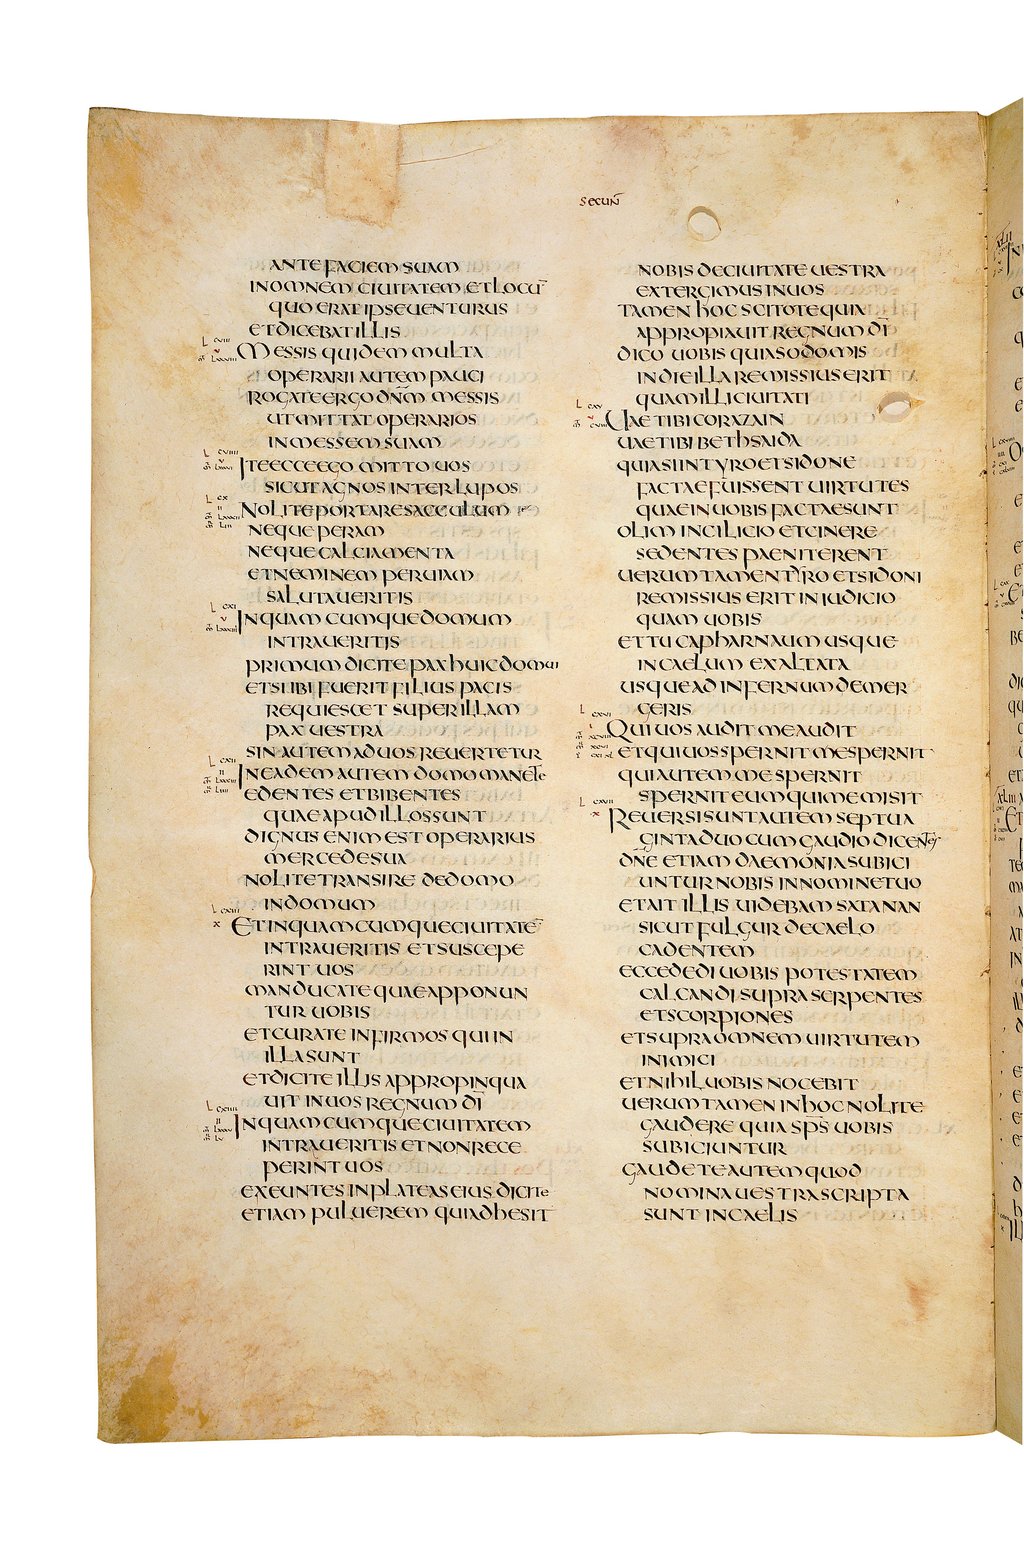 SECUN̄
ANTE FACIEM SUAM
IN OMNEM CIUITATEM ET LOCŪ
QUO ERAT IPSE UENTURUS
ET DICEBAT ILLIS
MESSIS QUIDEM MULTA
OPERARII AUTEM PAUCI
ROGATE ERGO DN̄M MESSIS
UT MITTAT OPERARIOS
IN MESSEM SUAM
ITE ECCE EGO MITTO UOS
SICUT AGNOS INTER LUPOS
NOLITE PORTARE SACCULUM
NEQUE PERAM
NEQUE CALCIAMENTA
ET NEMINEM PER UIAM
SALUTAUERITIS
IN QUAMCUMQUE DOMUM
INTRAUERITIS
PRIMUM DICITE PAX HUIC DOMUI
ET SI IBI FUERIT FILIUS PACIS
REQUIESCET SUPER ILLAM
PAX UESTRA
SIN AUTEM AD UOS REUERTETUR
IN EADEM AUTEM DOMO MANETE
EDENTES ET BIBENTES
QUAE APUD ILLOS SUNT
DIGNUS ENIM EST OPERARIUS
MERCEDE SUA
NOLITE TRANSIRE DE DOMO
IN DOMUM
ET IN QUAMCUMQUE CIUITATĒ
INTRAUERITIS ET SUSCEPE
RINT UOS
MANDUCATE QUAE APPONUN
TUR UOBIS
ET CURATE INFIRMOS QUI IN
ILLA SUNT
ET DICITE ILLIS APPROPINQUA
UIT IN UOS REGNUM DĪ
IN QUAMCUMQUE CIUITATEM
INTRAUERITIS ET NON RECE
PERINT UOS
EXEUNTES IN PLATEAS EIUS DICITE
ETIAM PULUEREM QUI ADHESIT
NOBIS DE CIUITATE UESTRA
EXTERGIMUS IN UOS
TAMEN HOC SCITOTE QUIA
APPROPIAUIT REGNUM DĪ
DICO UOBIS QUIA SODOMIS
IN DIE ILLA REMISSIUS ERIT
QUAM ILLI CIUITATI
UAE TIBI CORAZAIN
UAE TIBI BETHSAIDA
QUIA SI IN TYRO ET SIDONE
FACTAE FUISSENT UIRTUTES
QUAE IN UOBIS FACTAE SUNT
OLIM IN CILICIO ET CINERE
SEDENTES PAENITERENT
UERUMTAMEN TYRO ET SIDONI
REMISSIUS ERIT IN IUDICIO
QUAM UOBIS
ET TU CAPHARNAUM USQUE
IN CAELUM EXALTATA
USQUE AD INFERNUM DEMER
GERIS
QUI UOS AUDIT ME AUDIT
ET QUI UOS SPERNIT ME SPERNIT
QUI AUTEM ME SPERNIT
SPERNIT EUM QUI ME MISIT
REUERSI SUNT AUTEM SEPTUA
GINTA DUO CUM GAUDIO DICENTES
DN̄E ETIAM DAEMONIA SUBICI
UNTUR NOBIS IN NOMINE TUO
ET AIT ILLIS UIDEBAM SATANAN
SICUT FULGUR DE CAELO
CADENTEM
ECCE DEDI UOBIS POTESTATEM
CALCANDI SUPRA SERPENTES
ET SCORPIONES
ET SUPRA OMNEM UIRTUTEM
INIMICI
ET NIHIL UOBIS NOCEBIT
UERUMTAMEN IN HOC NOLITE
GAUDERE QUIA SPS̄ UOBIS
SUBICIUNTUR
GAUDETE AUTEM QUOD
NOMINA UESTRA SCRIPTA
SUNT IN CAELIS